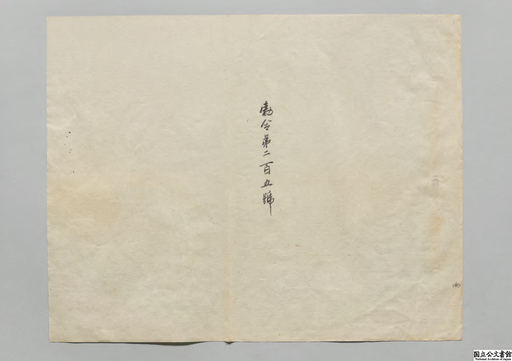 勅令第二百五號
国立公文書館
National Archives of Japan